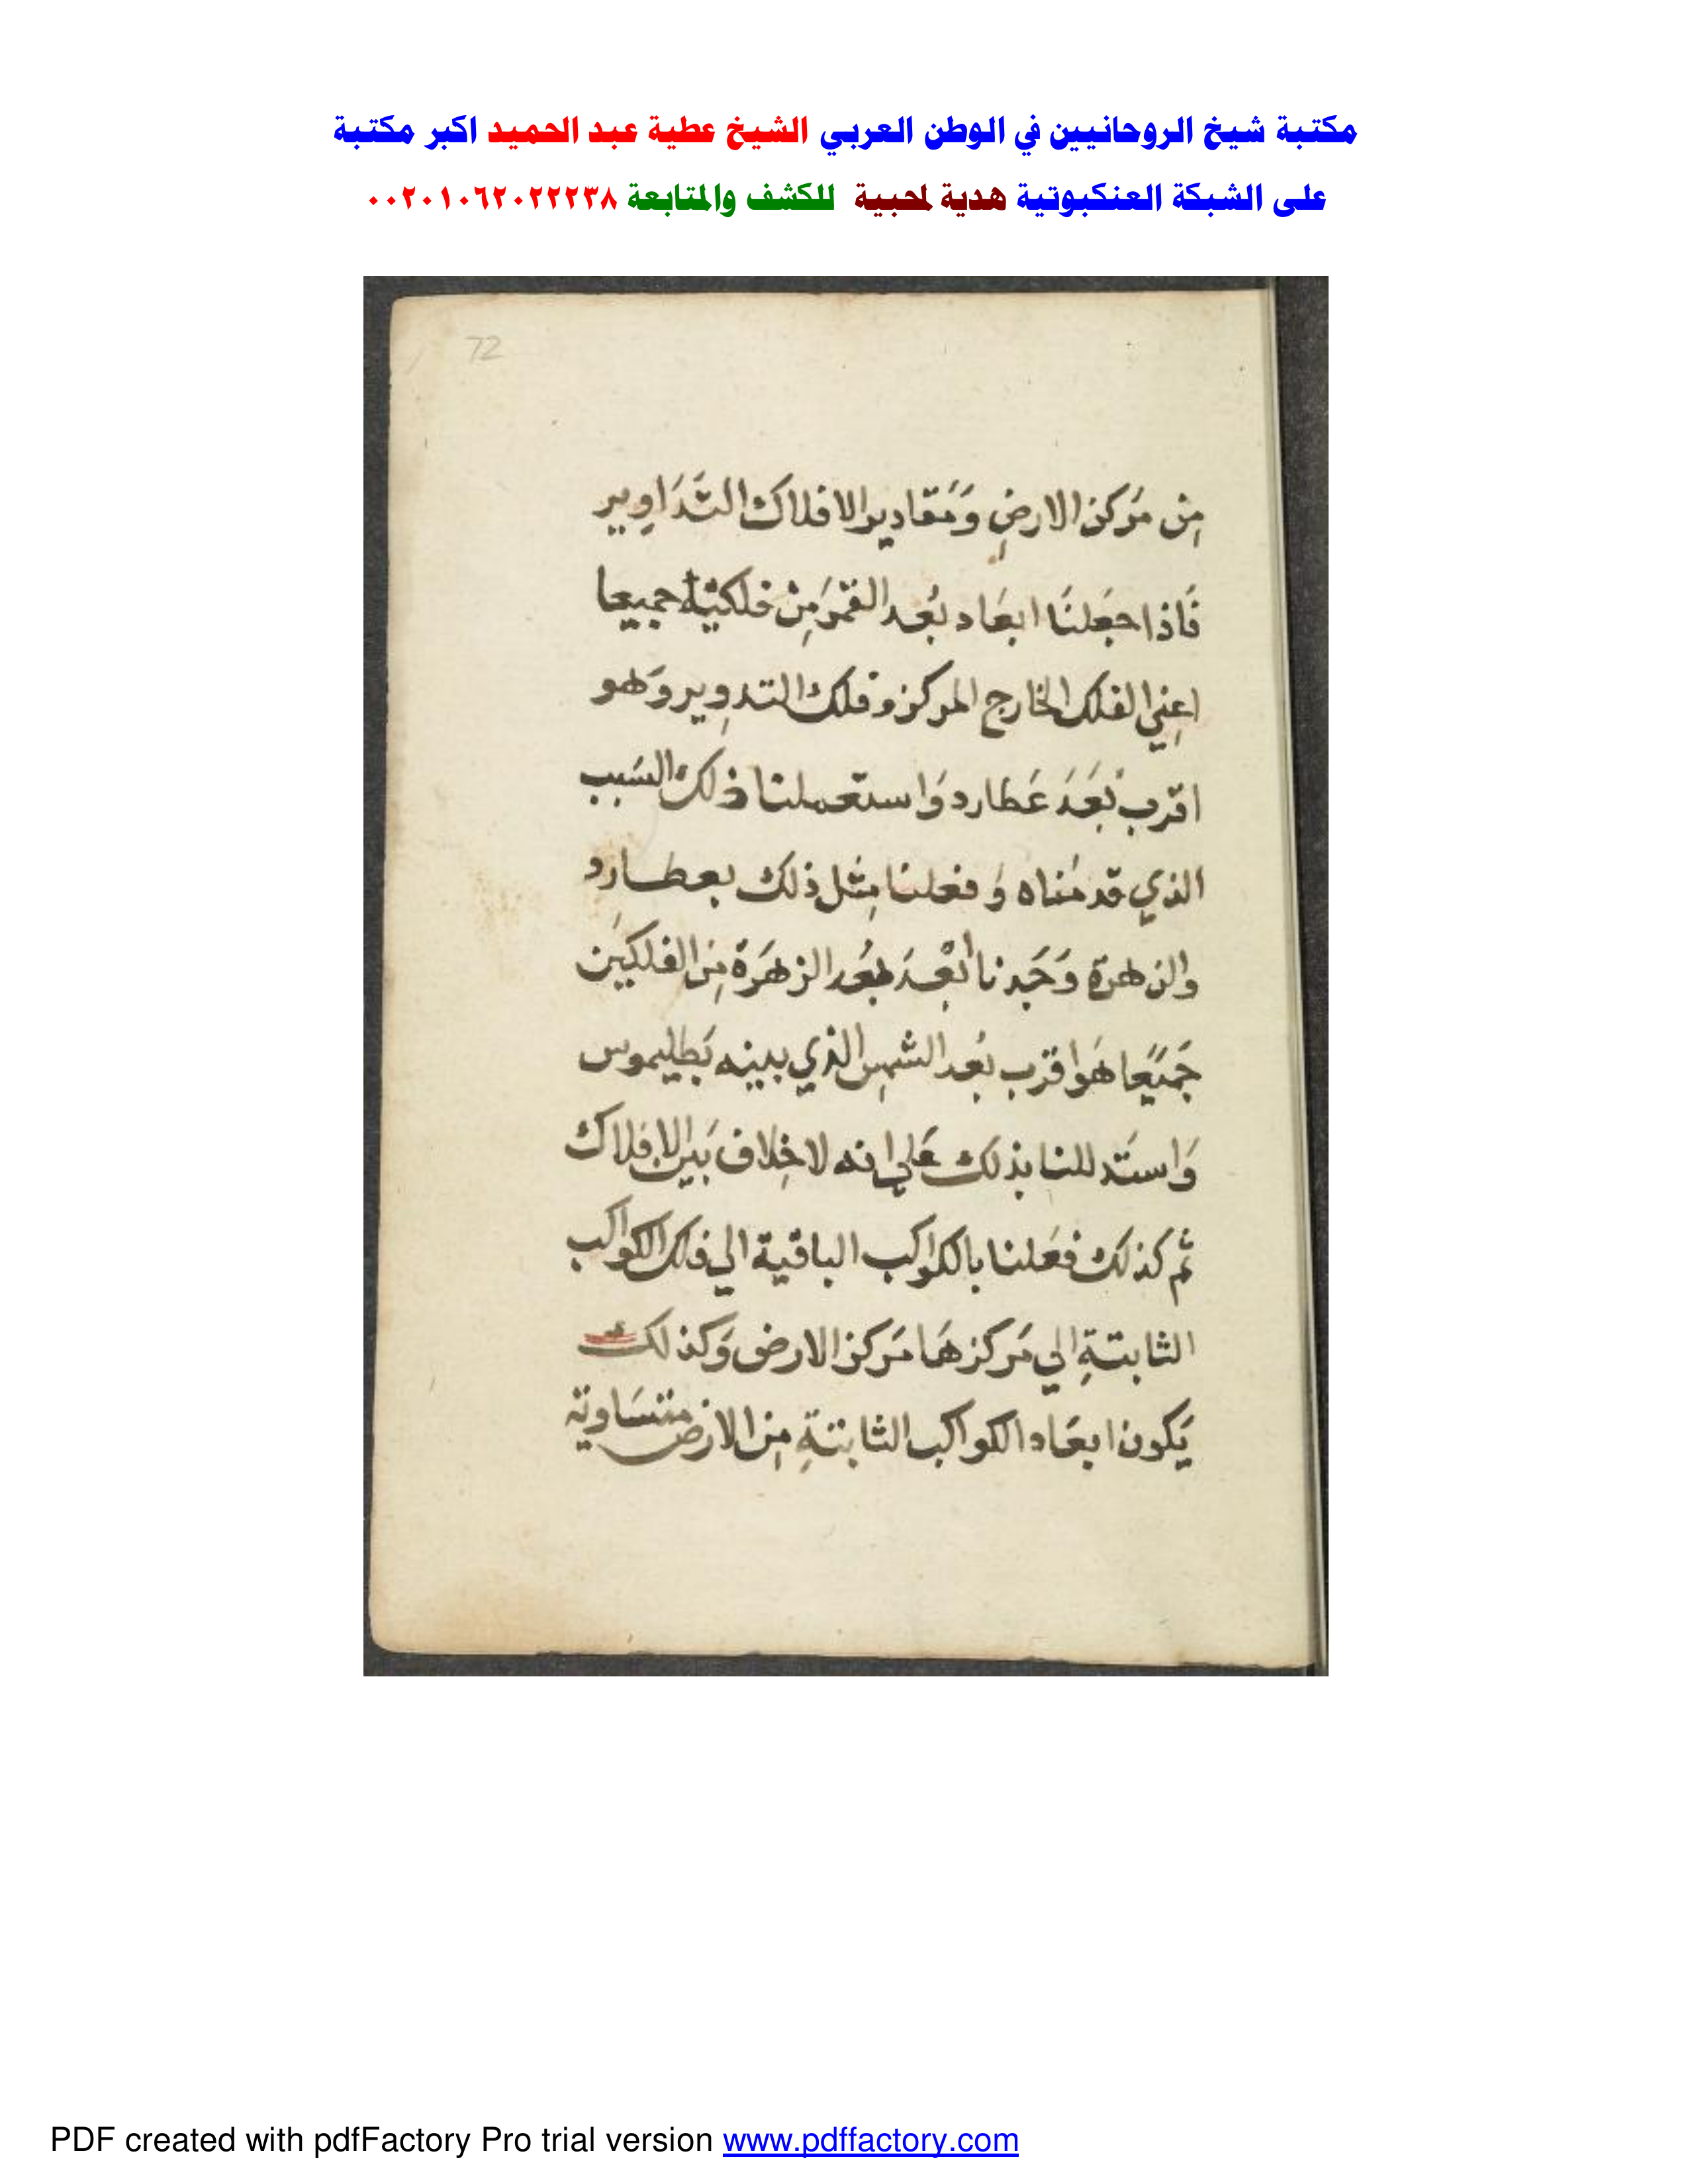 مكتبة شيخ الروحانيين في الوطن العربي الشيخ عطية عبد الحميد اكبر مكتبة
على الشبكة العنكبوتية هدية لمحبية للكشف والمتابعة ٠٠٢٠١٠٦٢٠٢٢٢٣٨
72
مِن مَركز الارضِ وَمَقادير الافلاك التَدَاوِير
فَاذا جَعَلنَا ابعَاد بُعد القَمَر مِن فلكيه جميعا
اعِني الفلك الخارج المركز وفلك التدوِير وَهو
اقرب بُعَدَ عَطارد وَاستعملنا ذلك السَبب
الذي قدمَناه وَفعلنا مِثل ذلك بعطارد
والزهرة وَجَدنا ابْعَد بُعد الزهَرَة مِن الفلكيَن
جَميَعًا هَوا قرَب بُعد الشمس الذي بينه بَطليموس
وَاستَدللنا بذلك عَلي انه لا خِلاف بَين الافلاك
ثم كذلك فعَلنا بالكواكب الباقية الي فلك الكواكب
الثابتةِ الي مَركزهَا مَركز الارض وَكذلك
يَكون ابعَاد الكواكب الثابتةِ مِن الارَض متسَاوية
PDF created with pdfFactory Pro trial version www.pdffactory.com